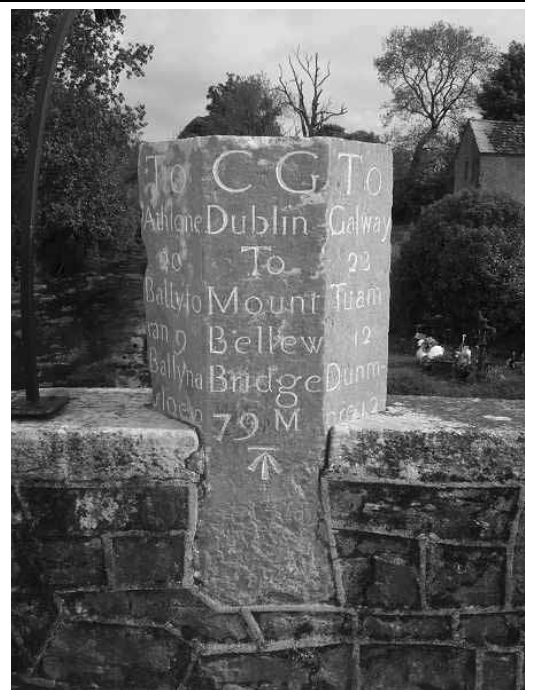 To
Athlone
Ballyfo
ran 9
Ballyna
C G
Dublin
To
Mount
Bellew
Bridge
79 M
To
Galway
Tuam
12
Dunm-